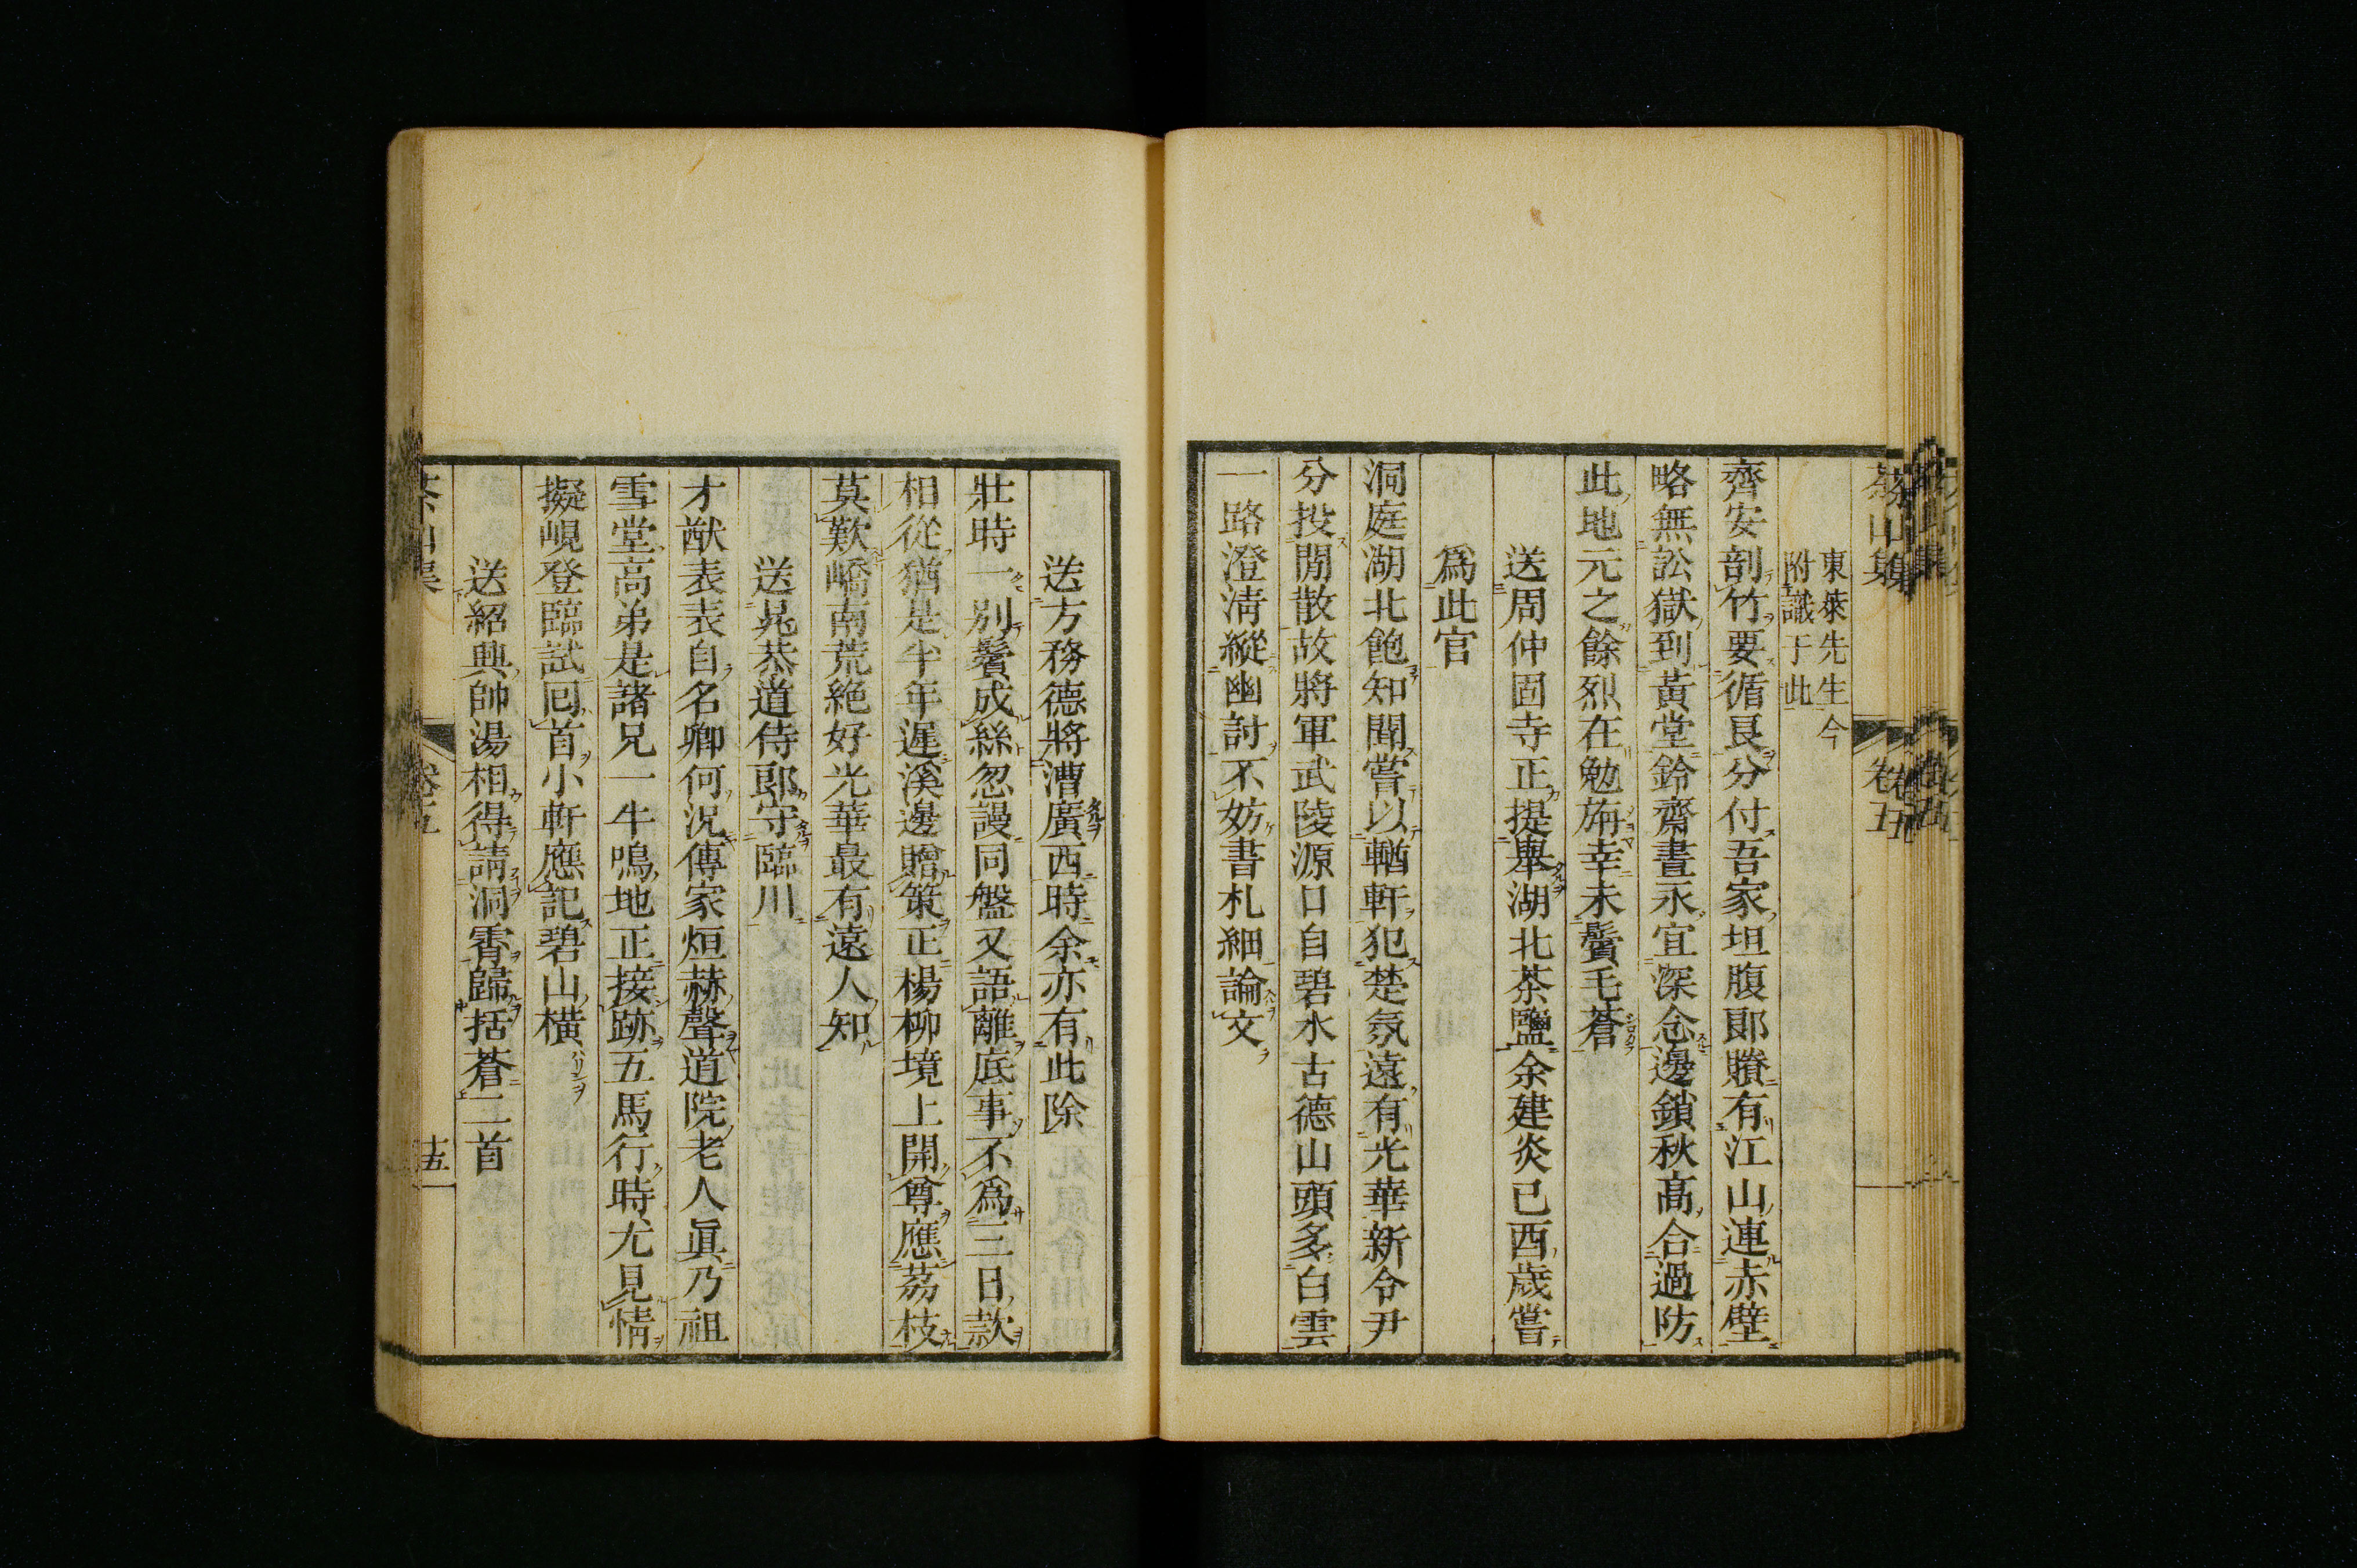 茶山集
卷五
東萊先生今
附識于此
齊安剖竹要循良分付吾家坦腹郞賸有江山連赤壁
略無訟獄到黃堂鈴齋晝永宜深念邊鎖秋高合過防
此地元之餘烈在勉旃幸未鬢毛蒼
送周仲固寺正提舉湖北茶鹽余建炎已酉歲嘗
爲此官
洞庭湖北飽知聞嘗以輶軒犯楚氛遠有光華新令尹
分投閒散故將軍武陵源口自碧水古德山頭多白雲
一路澄淸縱幽討不妨書札細論文
送方務德將漕廣西時余亦有此除
壯時一別鬢成絲忽謾同盤又語離底事不爲三日款
相從猶是半年遲溪邊贈策正楊柳境上開尊應荔枝
莫歎嶠南荒絕好光華最有遠人知
送晁恭道侍郞守臨川
才猷表表自名卿何況傳家烜赫聲道院老人眞乃祖
雪堂高弟是諸兄一牛鳴地正接跡五馬行時尤見情
擬峴登臨試回首小軒應記碧山橫
送紹興帥湯相得請洞霄歸括蒼二首
茶山集
卷五
十五